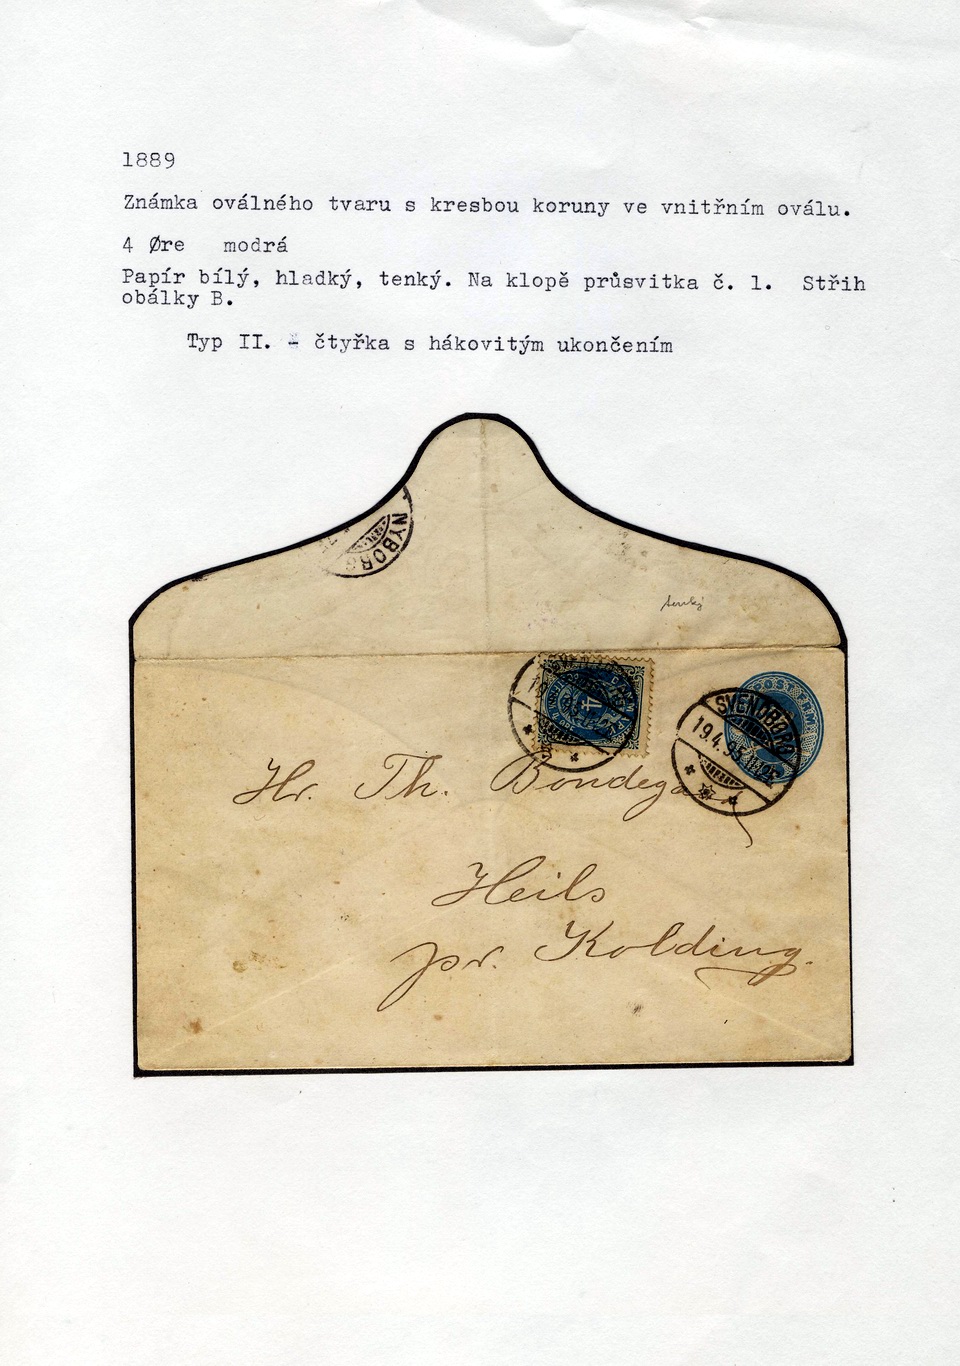 1889
Známka oválného tvaru s kresbou koruny ve vnitřním oválu.
4 Øre modrá
Papír bílý, hladký, tenký. Na klopě průsvitka č. 1. Střih
obálky B.
Typ II. - čtyřka s hákovitým ukončením
NYBORG
tenký
4
SVENDBORG
19.4.95
Hr. Th. Bondegaard
Heils
pr. Kolding.